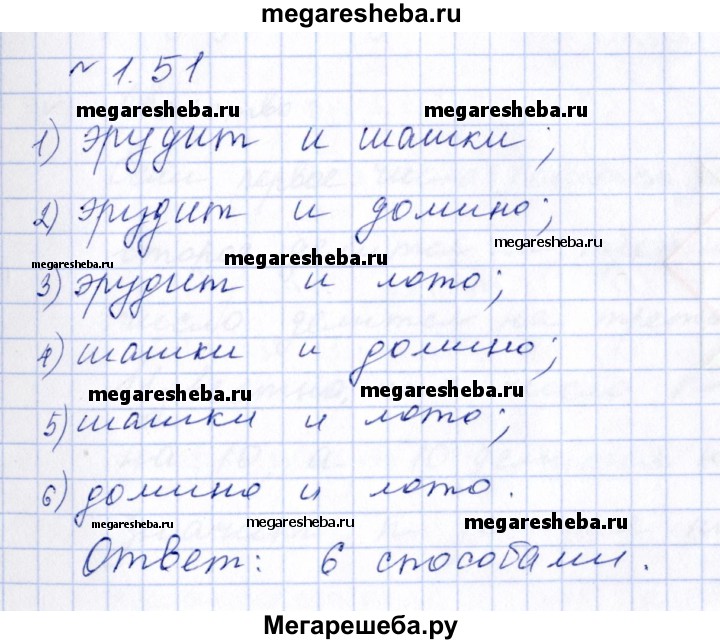 megaresheba.ru
~ 1.51
megaresheba.ru megaresheba.ru
1) эрудит и шашки;
2) эрудит и домино;
megaresheba.ru
megaresheba.ru megaresheba.ru
3) эрудит и лото;
4) шашки и домино;
megaresheba.ru megaresheba.ru
5) шашки и лото;
6) домино и лото.
megaresheba.ru megaresheba.ru megaresheba.ru
Ответ: 6 способами.
Мегарешеба.ру